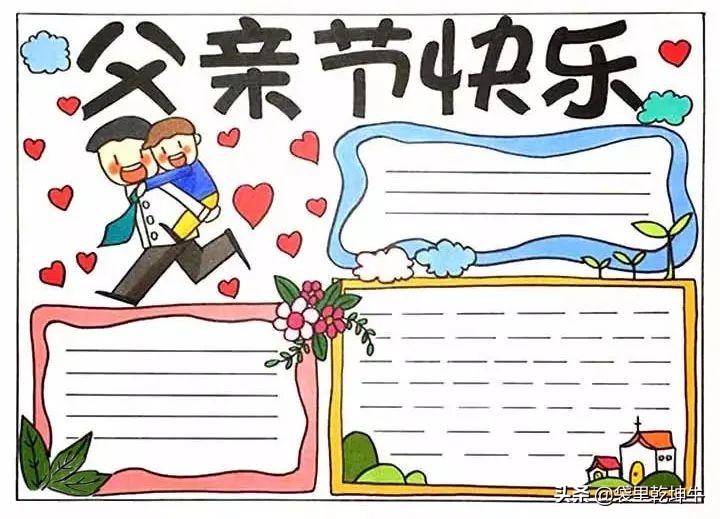 父亲节快乐
头条 @袋里乾坤牛